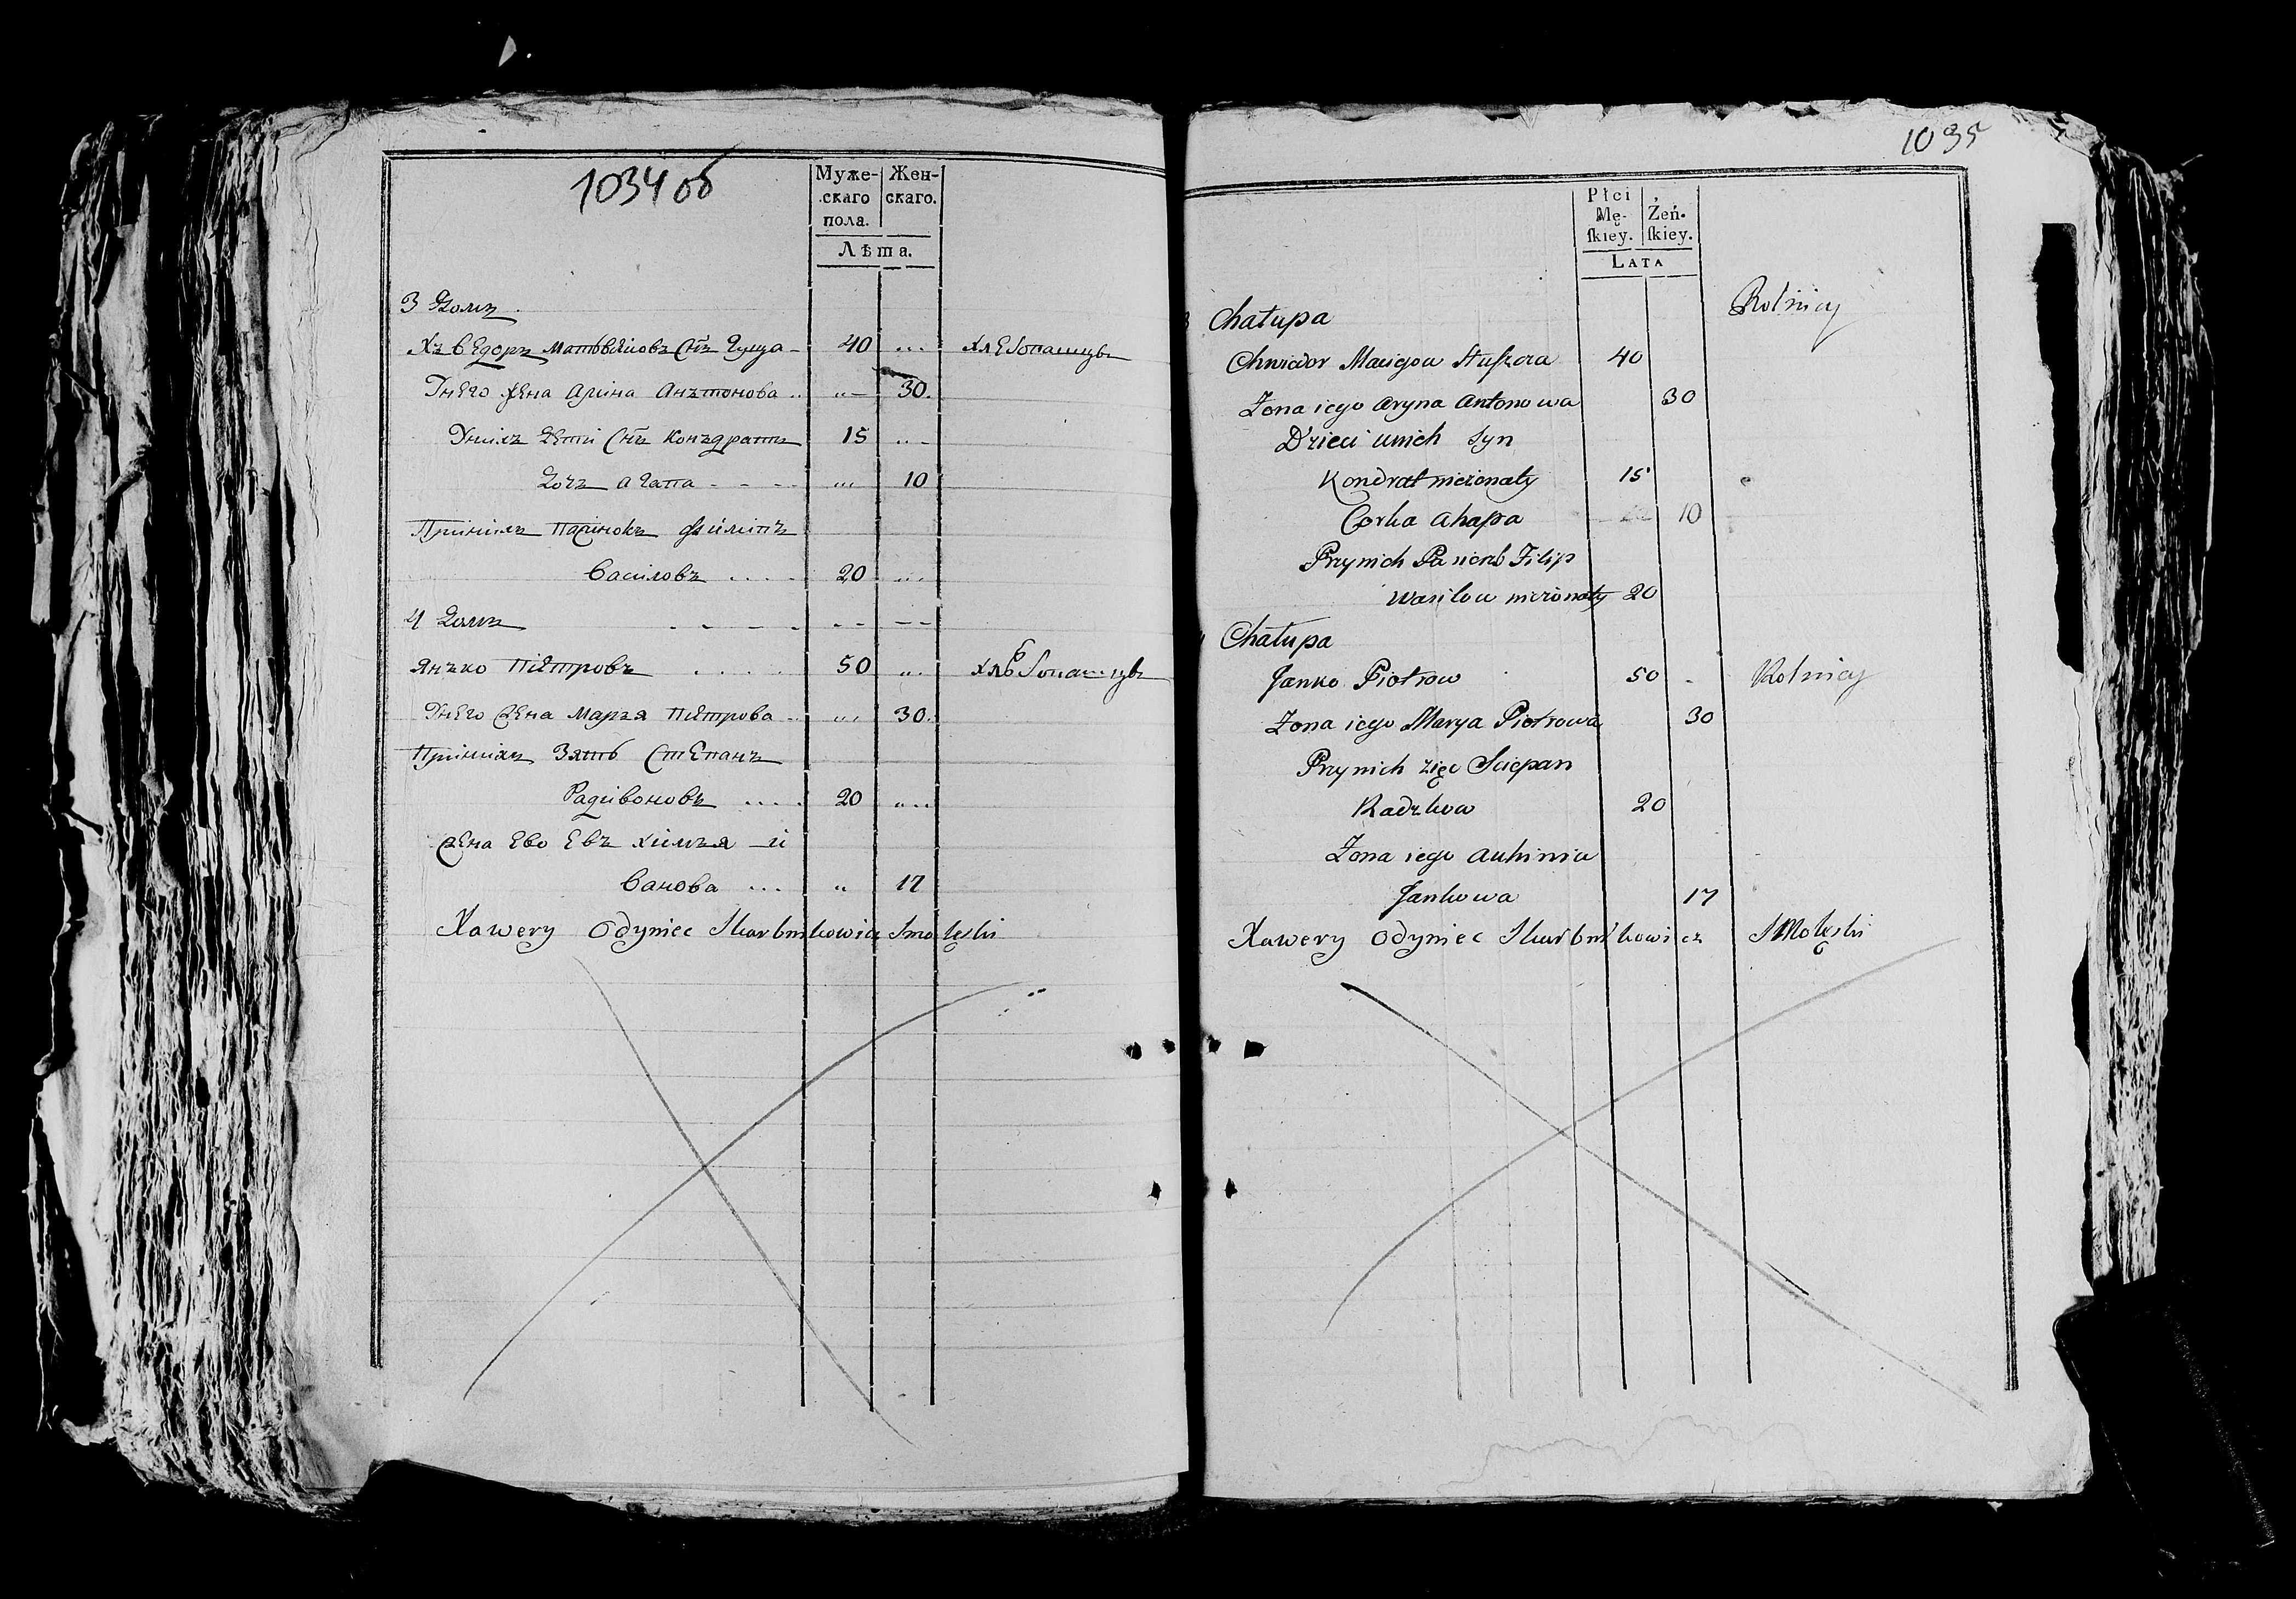 1034 об
Муже- Жен-
скаго скаго.
пола.
Лѣта.
3 Домъ
Хъвѣдоръ Матвѣйовъ Снъ Гуща 40 хлебопашцы
Унего жена Арина Анътонова 30.
Унихъ дети Снъ Конъдратъ 15
Дочъ Агапа 10
Принихъ пасінокъ Філіпъ
Васіловъ 20
4 Домъ
Янъко Піотровъ 50 хлебопашцы
Унего жена Маръя Піотрова 30.
Принихъ Зять Степанъ
Радивоновъ 20
жена ево Евъ химъя й
Ванова 17
Xawery Odyniec Skarbnikowicz Smoleński
1035
Płci
Mę- Żeń-
ſkiey. ſkiey.
LATA
3 Chałupa Rolnicy
Chwiedor Macieiow 40
Zona iego Aryna Antonowa 30
Dzieci unich Syn
Kondrat nieżonaty 15
Corka Ahapa 10
Przynich Pasierb Filip
Wasilow nieżonaty 20
4 Chałupa
Janko Piotrow 50 Rolnicy
Zona iego Marya Piotrowa 30
Przynich zięć Sciepan
20
Zona iego Auhinia
Jankowa 17
Xawery Odyniec Skarbnikowicz Smoleński